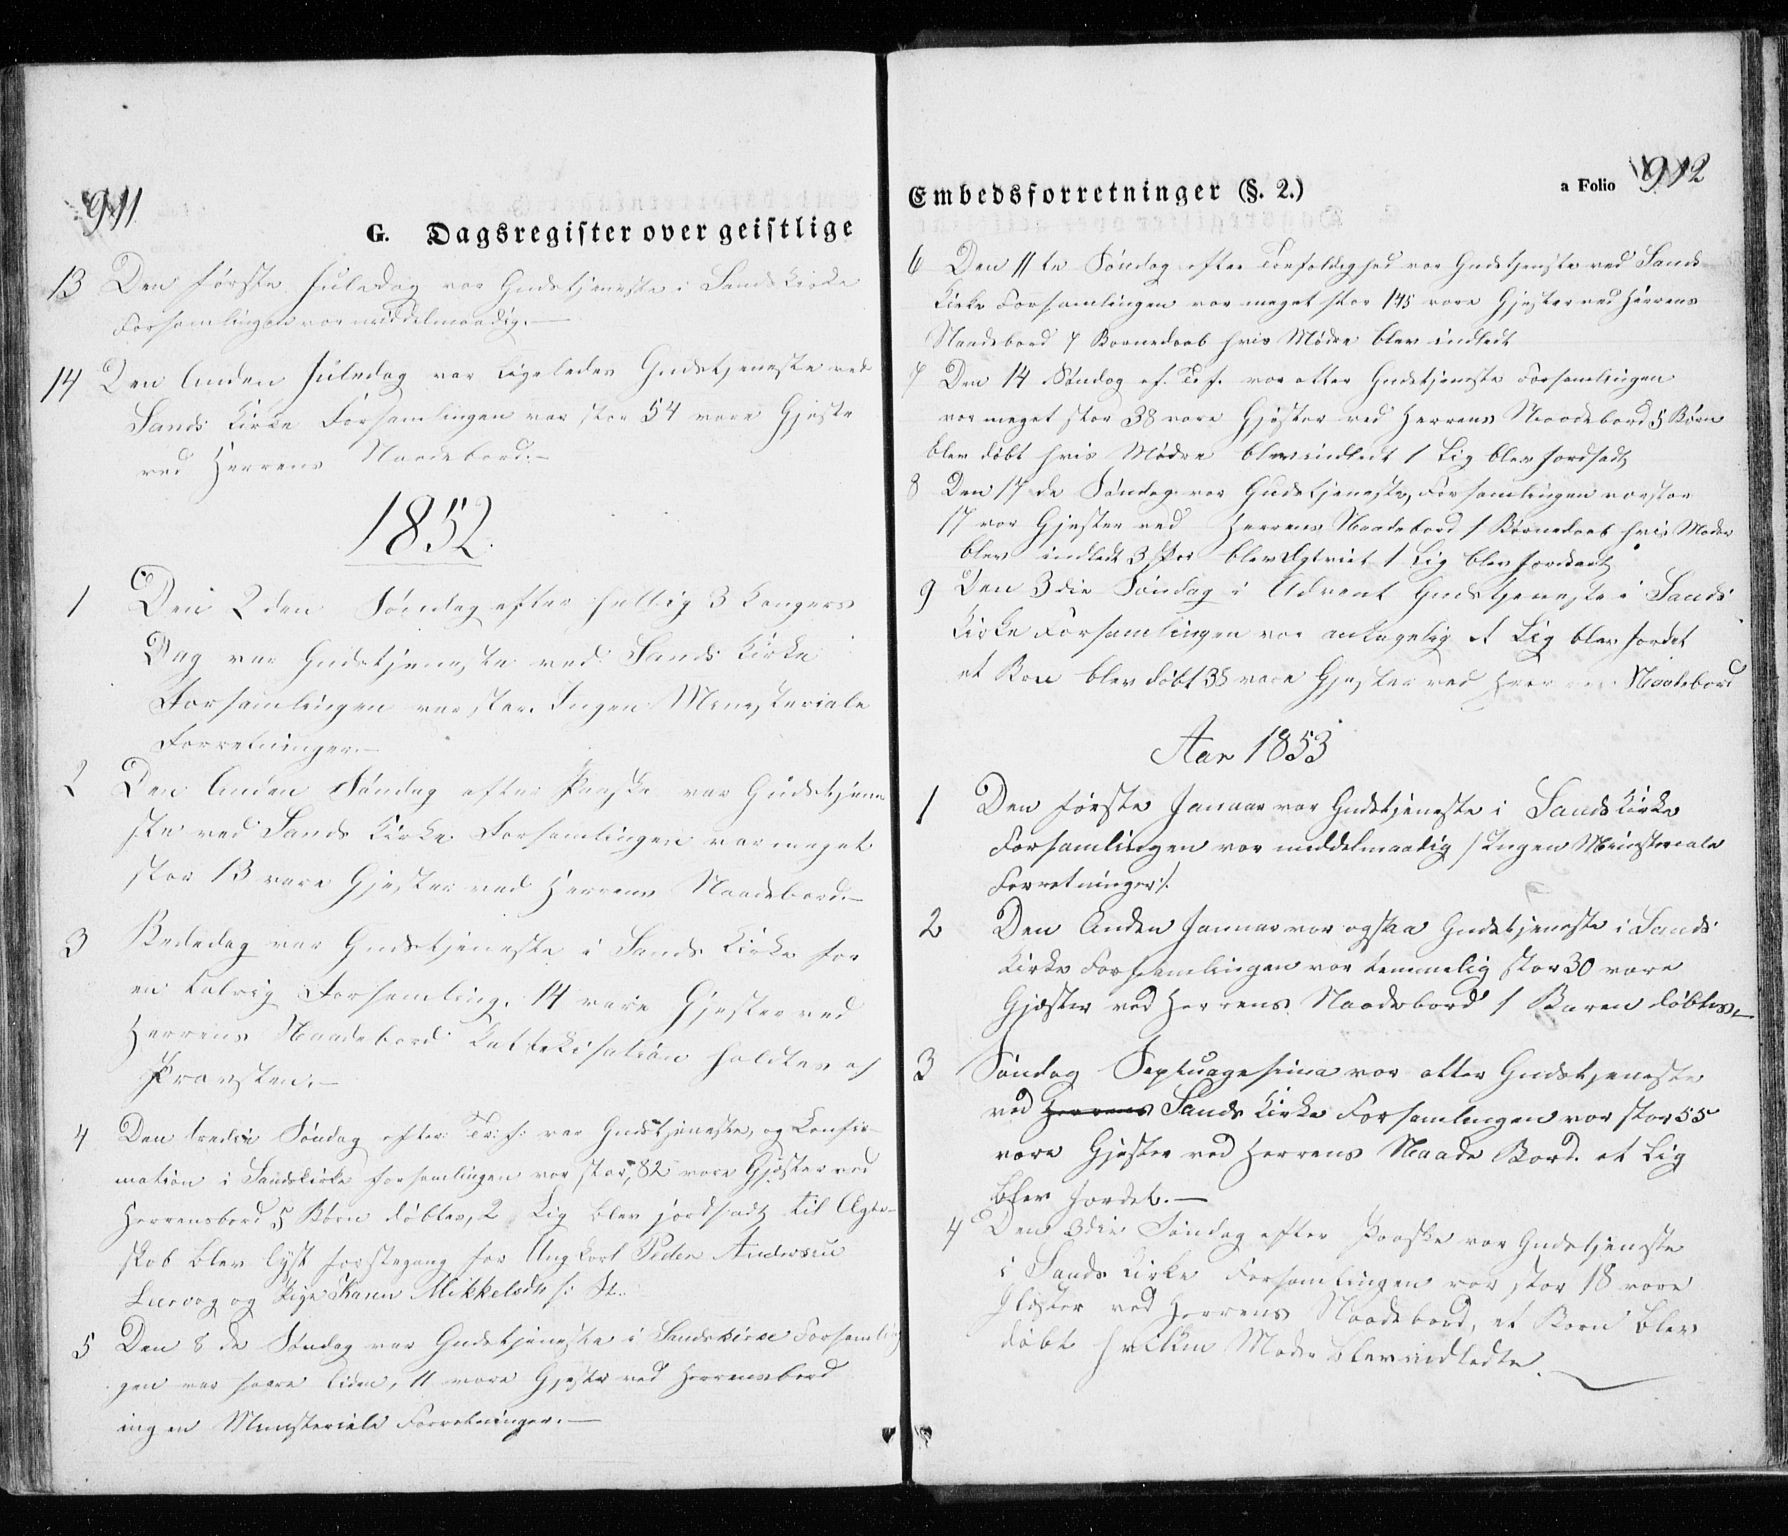 911
G. Dagsregister over geistlige
13 Den første Juledag var Gudstjeneste i Sands Kirke
Forsamlingen var middelmaadig.—
14 Den Anden Juledag var Ligeledes Gudstjeneste ved
Sands Kirke Forsamlingen var stor 54 vare Gjeste
ved Herrens Naadebord.—
1852.
1 Den 2den Søndag efter hellig 3 Kongers
Dag var Gudstjeneste ved Sands Kirke
Forsamlingen var stor. Ingen Ministeriale
Forretninger.—
2 Den Anden Søndag efter Paaske var Gudstjene
ste ved Sands Kirke Forsamlingen var meget
stor 13 vare Gjester ved Herrens Naadebord.—
3 Bededag var Gudstjeneste i Sands Kirke for
en talrig Forsamling. 14 vare Gjester ved
Herrens Naadebord Kattekisation holdtes af
Provsten.—
4 Den tredie Søndag efter Tr: f: var Gudstjeneste, og Confir-
mation i Sandskirke forsamlingen var stor, 82 vare Gjester ved
Herrensbord 5 Børn døbtes, 2 Lig blev jordfæstet til Ægte-
skab blev lyst førstegang for Ungkarl Peder Andersen
Lurvog og Pige Karen Mikkelsdtr
5 Den 8de Søndag var Gudstjeneste i Sandskirke Forsamlin
gen var saare liden, 11 vare Gjester ved Herrensbord
ingen Ministeriale Forretninger.—
Embedsforretninger (§. 2.)
a Folio 912
6 Den 11te Søndag efter Trefoldighed var Gudstjeneste ved Sands
Kirke Forsamlingen var meget stor 145 vare Gjester ved Herrens
Naadebord 7 Barnedaab hvis Mødre blev indledt
7 Den 14 Søndag ef. Tr. f. var atter Gudstjeneste Forsamlingen
var meget stor 38 vare Gjester ved Herrens Naadebord 5 Børn
blev døbt hvis Mødre blev indledt 1 Lig blev jordfæstet
8 Den 17de Søndag var Gudstjeneste, Forsamlingen var stor
17 var Gjester ved Herrens Naadebord 1 Barnedaab hvis Moder
blev indledt 3 Par blev Egteviet 1 Lig blev jordfæstet
9 Den 3die Søndag i Advent Gudstjeneste i Sands
Kirke Forsamlingen var antagelig et Lig blev jordet
et Barn blev døbt 35 vare Gjester ved Herrens Naadebord
Aar 1853
1 Den første Januar var Gudstjeneste i Sands Kirke
Forsamlingen var middelmaadig / Ingen Ministeriale
Forretninger /.
2 Den Anden Januar var ogsaa Gudstjeneste i Sands
Kirke Forsamlingen var temmelig stor 30 vare
Gjester ved Herrens Naadebord 1 Baren døbtes.—
3 Søndag Septuagesima var atter Gudstjeneste
ved Herrens Sands Kirke Forsamlingen var stor 55
vare Gjester ved Herrens Naade Bord. et Lig
blev jordet.—
4 Den 3die Søndag efter Paaske var Gudstjeneste
i Sands Kirke Forsamlingen var stor 18 vare
Gjester ved Herrens Naadebord, et Barn blev
døbt hvilken Moder blev indledte.